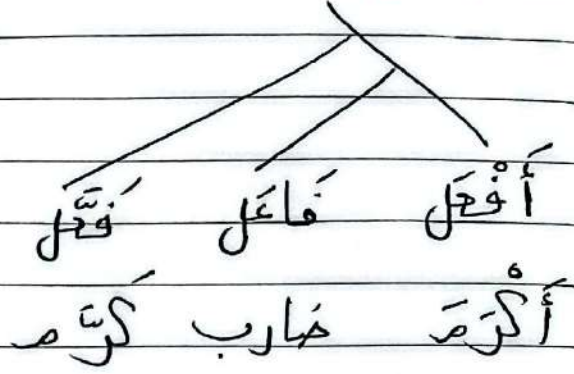 أَفْعَل فَاعَل فَعَّل
أَكْرَمَ ضارب كَرَّم